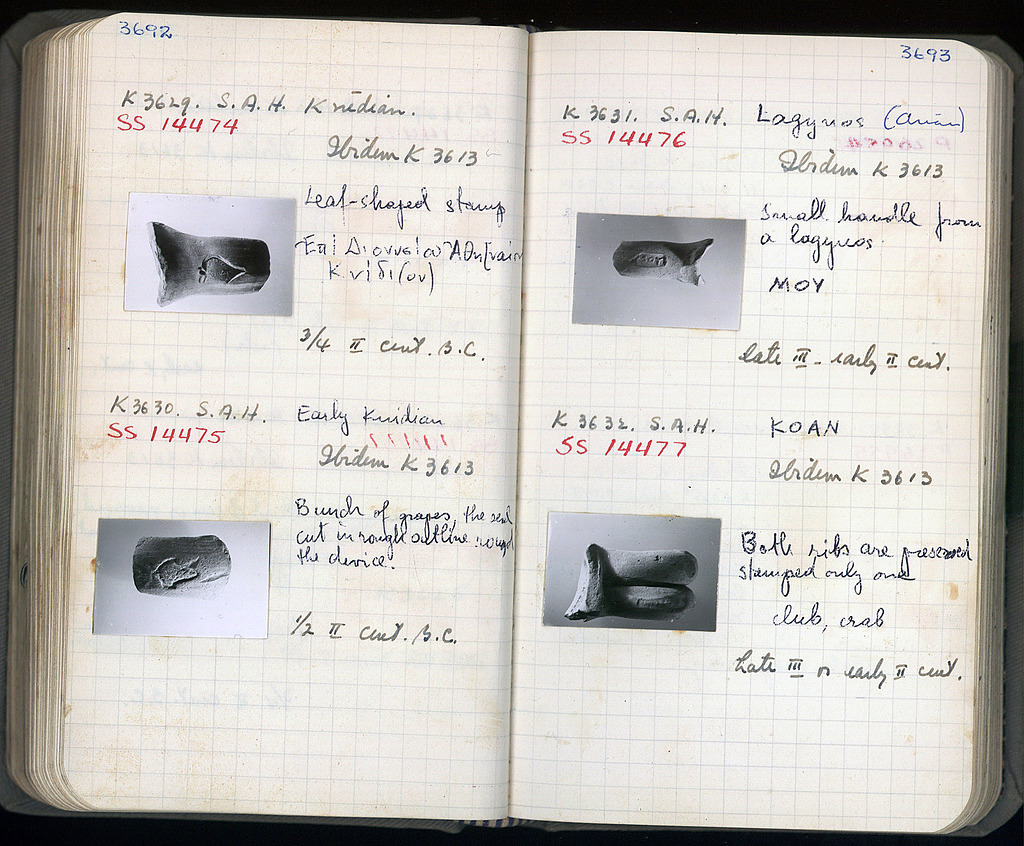 3692
K 3629. S.A.H. Knidian.
SS 14474
Ibidem K 3613
Leaf-shaped stamp
Επὶ Διονυσίου Ἀθη[ναίου
Κνίδι(ον)
3/4 II cent. B.C.
K 3630. S.A.H. Early Knidian
SS 14475
Ibidem K 3613
Bunch of grapes, the seal
cut in rough outline round
the device.
1/2 II cent. B.C.
3693
K 3631. S.A.H. Lagynos
SS 14476
Ibidem K 3613
Small handle from
a lagynos.
MOY
late III - early II cent.
K 3632. S.A.H. KOAN
SS 14477
Ibidem K 3613
Both ribs are preserved
stamped only one
club, crab
Late III or early II cent.